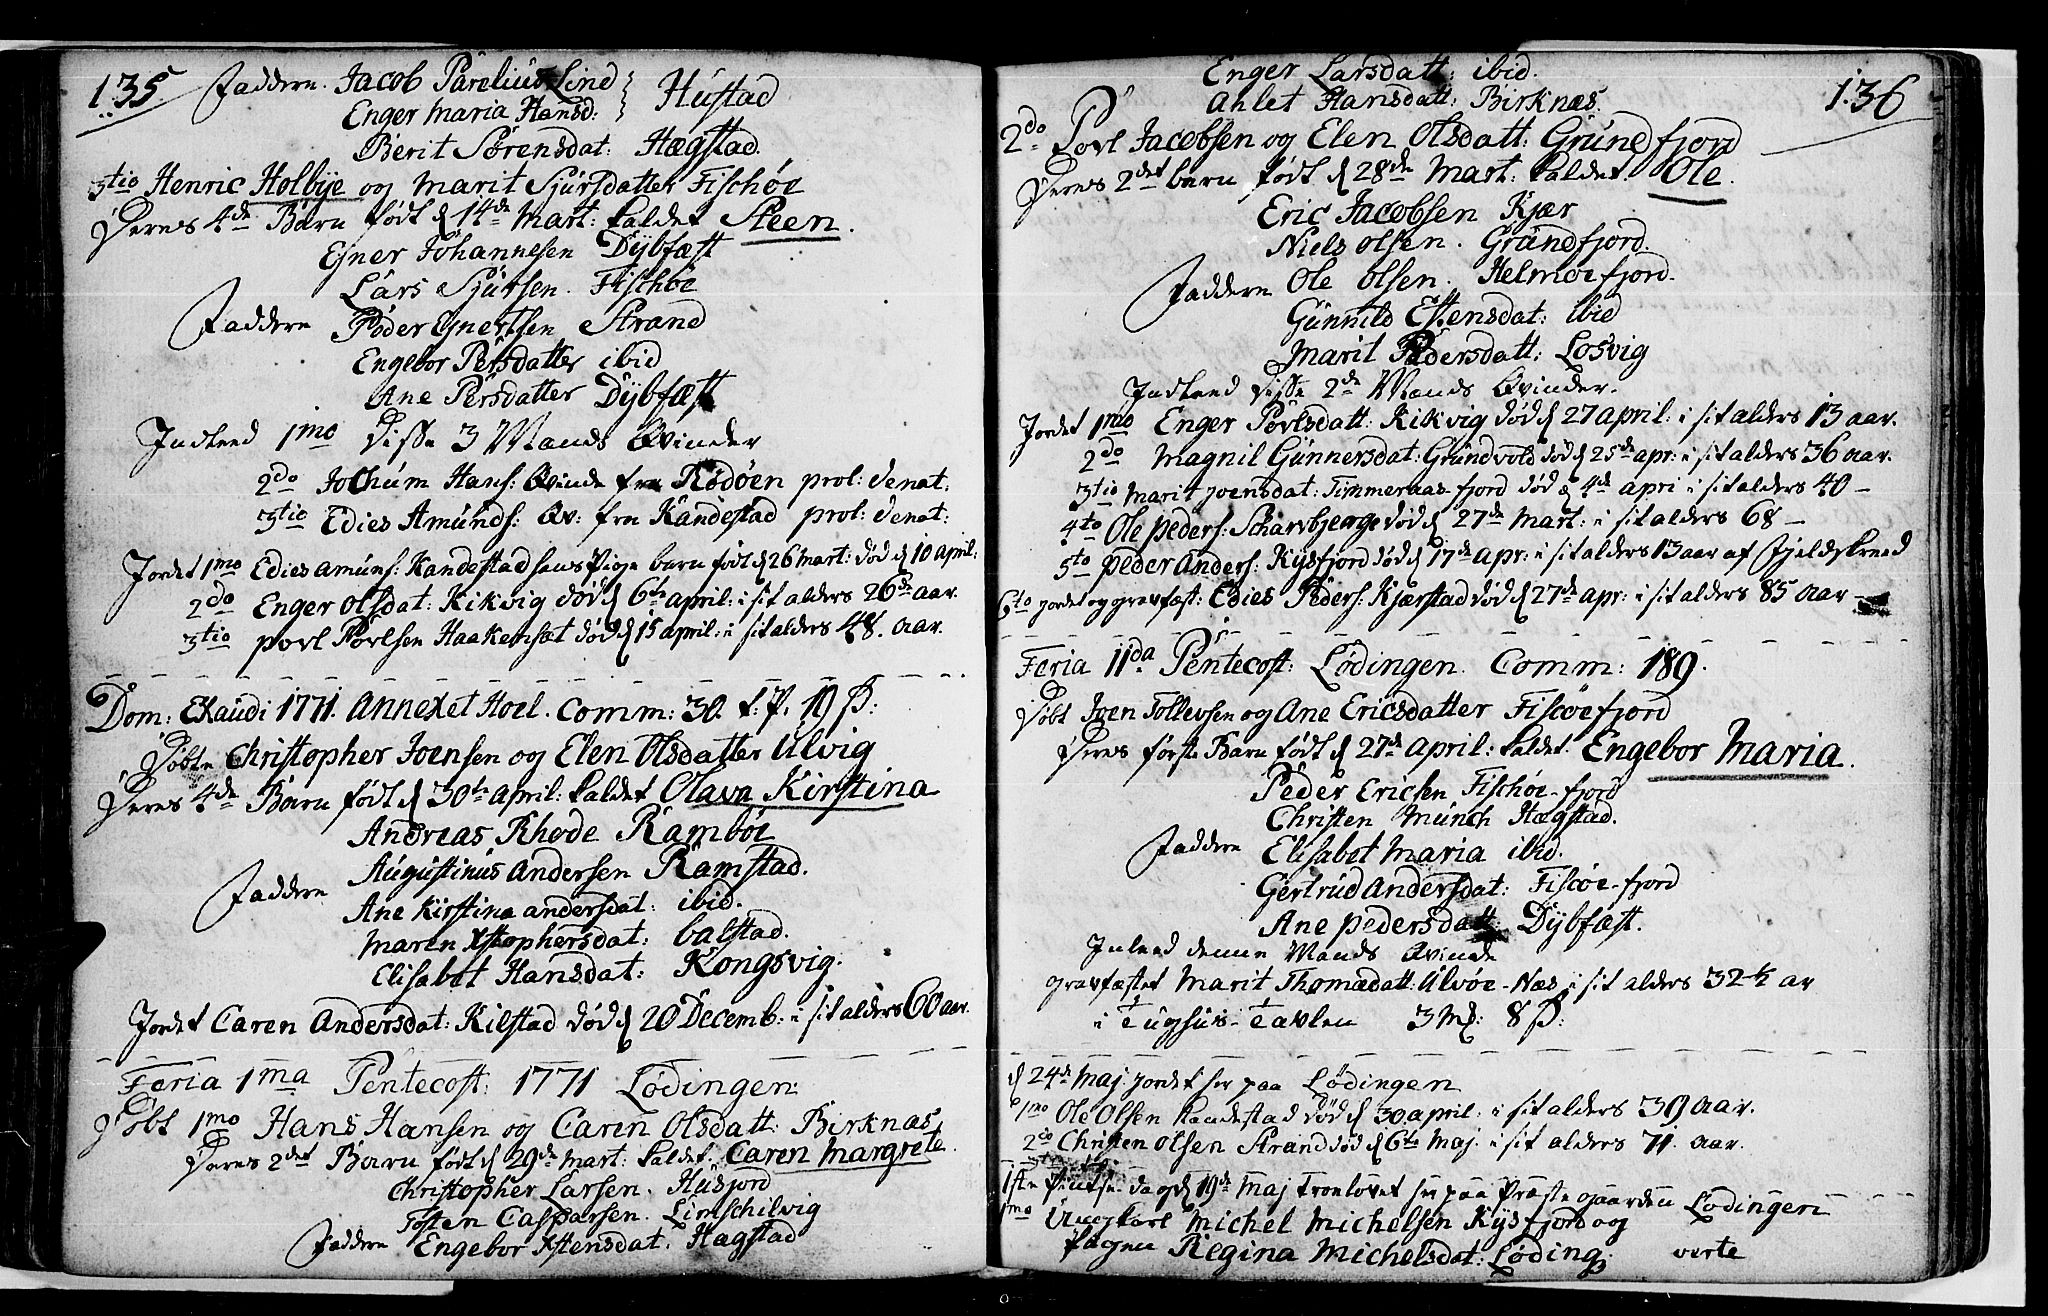 135
Faddere Jacob Parelius Lind } Hustad
Enger Maria Hansd:
Berit Sørensdat: Hægstad.
3tio Henric Holbye og Marit Sjursdatter Fischøe
Deres 4de Barn født d 14de Mart: kaldet Steen.
Ejner Johannesen Dybfæst
Lars Sjursen. Fischøe
Faddere Peder Ejnertsen Strand
Engebor Persdatter ibid
Ane Persdatter Dybfæst
Indleed 1mo Disse 3 Mands Qvinder
2do Jochum Hans: Qvinde fra Rødøen prol: denat:
3tio Edies Amunds: Qv: fra Kandestad prol: denat:
Jordet 1mo Edies Amuns: Kandestad hans Pige barn født d 26 Mart: død d 10 april:
2do Enger Olsdat: Kikvig død d 6te april: i sit alders 26de aar.
3tio Povl Povlsen Haakensæt død d 15 april: i sit alders 48. aar.
Dom: Exaudi 1771. Annexet Hoel. Comm: 30. t: P. 19 β:
Døbte Christopher Joensen og Elen Olsdatter Ulvig
Deres 4de Barn født d 30te april: kaldet Olava Kirstina
Andreas Rhode Ramsøe
Augustinus Andersen Ramstad.
Faddere
Ane Kirstina andersdat: ibid.
Maren Xstophersdat: balstad.
Elisabet Hansdat: Kongsvig.
Jordet Caren Andersdat: Kilstad død d 20 Decemb: i sit alders 60 aar.
Feria 1ma Pentecost: 1771 Lødingen:
Døbt 1mo Hans Hansen og Caren Olsdatt: Birknæs
Deres 2det Barn født d 29de Mart: kaldet Caren Margrete.
Christopher Larsen. Husjord
Tosten Caspersen. Limschilvig
Faddere Engebor Xstensdat: Hægstad
136
Enger Larsdatt: ibid.
Ahlet Hansdatt: Birknæs.
2do Povl Jacobsen og Elen Olsdatt: Grundfjord
Deres 2det barn født d 28de Mart: kaldet Ole.
Eric Jacobsen Kjær
Niels Olsen. Grundfjord.
Faddere Ole Olsen. Helmoefjord.
Gunnild Estensdat: ibid
Marit Pedersdatt: Losvig
Indleed Disse 2de Mands Qvinder.
Jordet 1mo Enger Povlsdatt: Kikvig død d 27 april: i sit alders 13 aar.
2do Magnil Gunnersdat: Grundvold død d 25de apr: i sit alders 36 aar.
3tio Marit Joensdat: Timmernas-fjord død d 4de apri i sit alders 40 —
4to Ole Peders: Scharvbjerge død d 27de Mart: i sit alders 68 —
5to Peder Anders: Kysfjord død d 17de apr: i sit alders 13 aar af Fjeldskreed
6to jordet og gravfæst: Edies Peders: Kjærstad død d 27de apr: i sit alders 85 aar —
Feria 11da Pentecost: Lødingen. Comm: 189.
Døbt Joen Tollevsen og Ane Ericsdatter Fiscøefjord
Deres første Barn født d 27de April: kaldet. Engebor Maria.
Peder Ericsen Fischøe-fjord
Christen Munch Hægstad.
Faddere Elisabet Maria ibid.
Gertrud Andersdat: Fiscøe-fjord
Ane Pedersdatt: Dybfæst.
Inleed denne Mands Qvinde
gravfæstet Marit Thomædatt: Ulvøe-Næs i sit alders 32 ½ ar
i Tugthus-Tavlen 3 mf: 8 β:
d 24de Maj: jordet her paa Lødingen
1mo Ole Olsen Kandestad død d 30 april: i sit alders 39 aar.
2do Christen Olsen Strand død d 6te Maj: i sit alders 71. aar.
1ste Pintse dag d 19de Maj Troelovet her paa Præstegaarden Lødingen
1mo Ungkarl Michel Michelsen Kysfjord og
Pigen Regina Michelsdat: Løding: verte